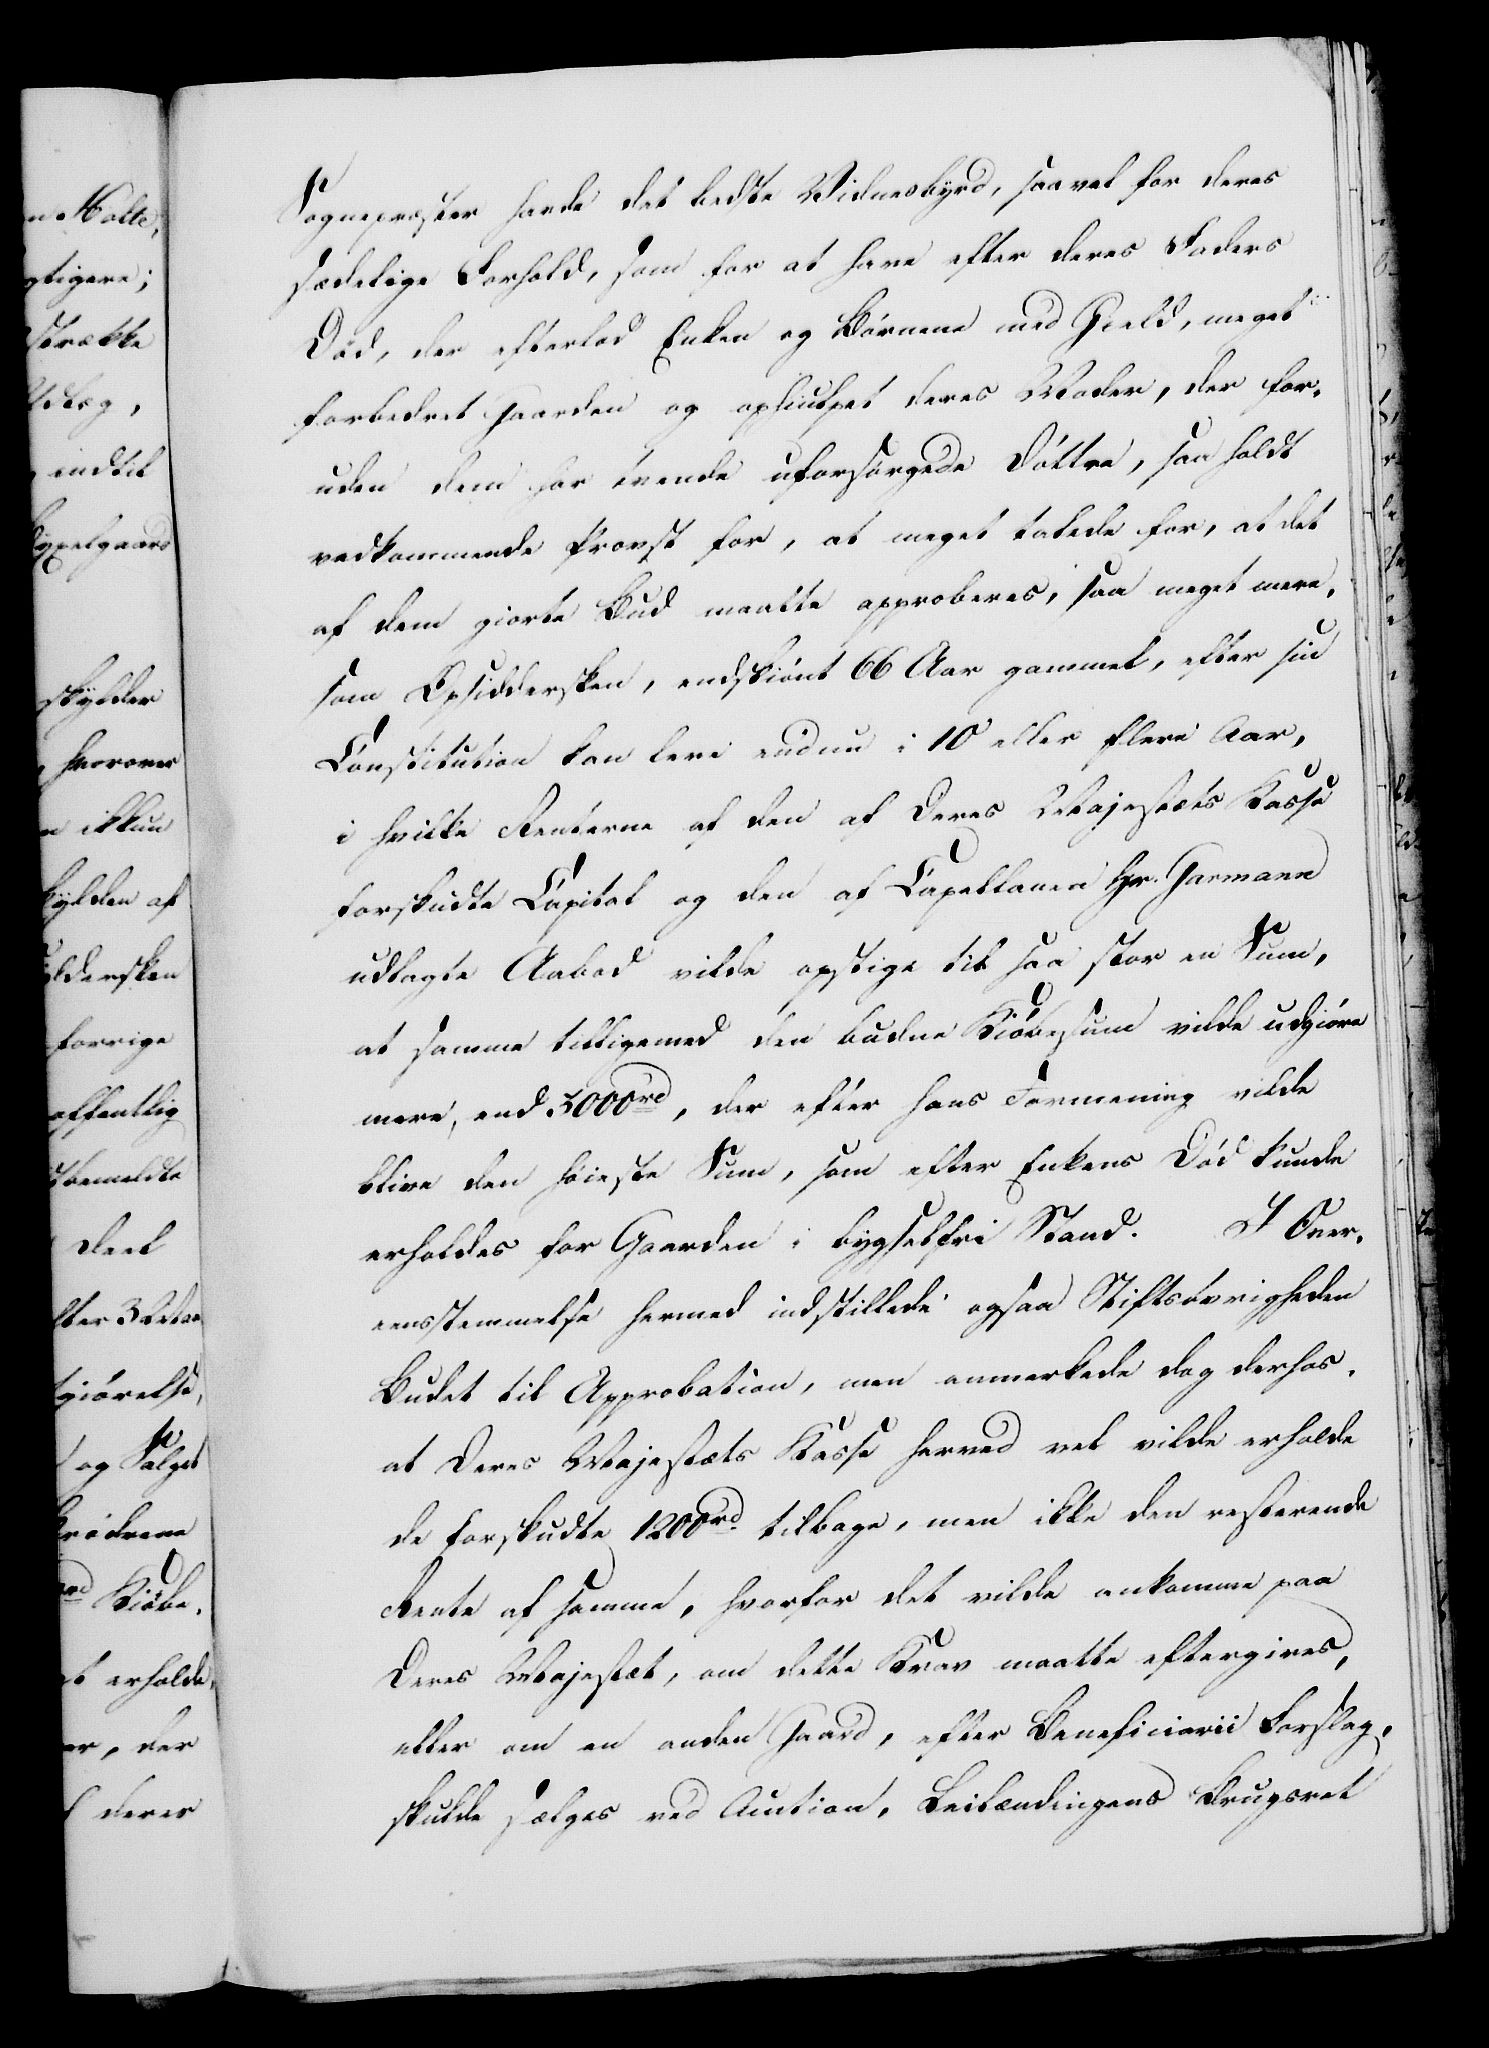 Sognepræster havde det bedste Vidnesbyrd, saavel for deres
sædelige Forhold, som for at have efter deres Faders
Død, der efterlod Enken og Børnene med Gield, meget
forbedret Gaarden og ophiulpet deres Moder, der for-
uden dem har tvende uforsørgede Døttre, saa holdt
vedkommende Provst for, at meget talede for, at det
af dem giorte Bud maatte approberes, saa meget mere,
som Opsiddersken, endskiønt 66 Aar gammel, efter sin
Constitution kan leve endnu i 10 eller flere Aar,
i hvilke Renterne af den af Deres Majestæts Kasse
forskudte Capital og den af Capellanen Hr. Garmann
udlagte Aabod vilde opstige til saa stor en Sum,
at samme tilligemed den budne Kiøbesum vilde udgiøre
mere, end 3000rd, der efter hans Formening vilde
blive den høieste Sum, som efter Enkens Død kunde
erholdes for Gaarden i bygselfri Stand. I Over-
eensstemmelse hermed indstillede ogsaa Stiftsøvrigheden
Budet til Approbation, men anmærkede dog derhos,
at Deres Majestæts Kasse herved vel vilde erholde
de forskudte 1200rd tilbage, men ikke den resterende
Rente af samme, hvorfor det vilde ankomme paa
Deres Majestæt, om dette Krav maatte eftergives,
eller om en anden Gaard, efter Beneficiarii Forslag,
skulde sælges ved Auction, Leilændingens Brugsret